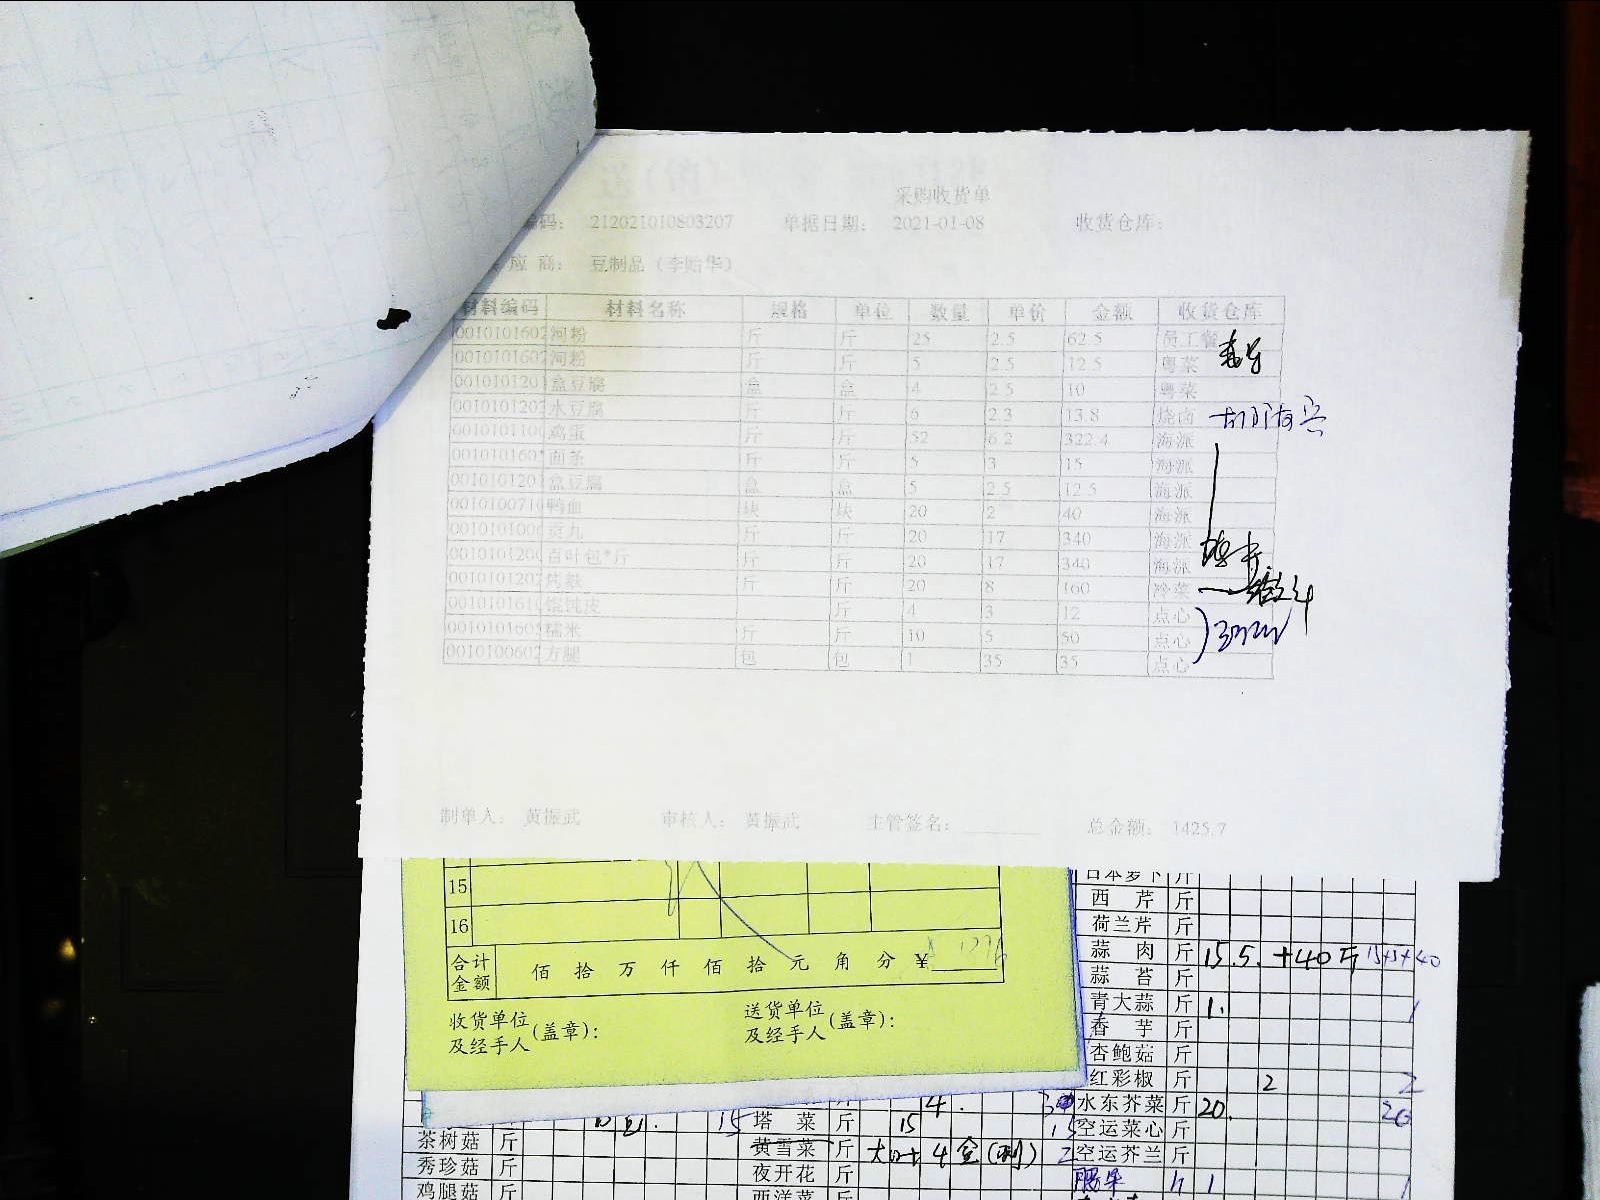 采购收货单
编码： 212021010803207 单据日期： 2021-01-08 收货仓库：
应 商： 豆制品（李贻华）
材料编码 材料名称 规格 单位 数量 单价 金额 收货仓库
0010101602 河粉 斤 斤 25 2.5 62.5 员工餐
0010101602 河粉 斤 斤 5 2.5 12.5 粤菜
0010101201 盒豆腐 盒 盒 4 2.5 10 粤菜
0010101202 水豆腐 斤 斤 6 2.3 13.8 烧卤
0010101100 鸡蛋 斤 斤 52 6.2 322.4 海派
001010160 面条 斤 斤 5 3 15 海派
0010101201 盒豆腐 盒 盒 5 2.5 12.5 海派
0010100710 鸭血 块 块 20 2 40 海派
001010100 贡丸 斤 斤 20 17 340 海派
0010101200 百叶包*斤 斤 斤 20 17 340 海派
0010101202 烤麸 斤 斤 20 8 160 冷菜
0010101610 馄饨皮 斤 4 3 12 点心
001010160 糯米 斤 斤 10 5 50 点心
0010100602 方腿 包 包 1 35 35 点心
制单人： 黄振武 审核人： 黄振武 主管签名： 总金额： 1425.7
15
16
合计金额 佰 拾 万 仟 佰 拾 元 角 分 ￥
收货单位及经手人（盖章）： 送货单位及经手人（盖章）：
日本萝卜 斤
西芹 斤
荷兰芹 斤
蒜肉 斤 15.5.+40斤 15+5+40
蒜苔 斤
青大蒜 斤 1. 1
香芋 斤
杏鲍菇 斤
红彩椒 斤 2 2
水东芥菜 斤 20. 20
塔菜 斤 15 15 空运菜心 斤
茶树菇 斤 黄雪菜 斤 2 空运芥兰 斤
秀珍菇 斤 夜开花 斤 腰果 斤 1 1
鸡腿菇 斤 西洋菜 斤